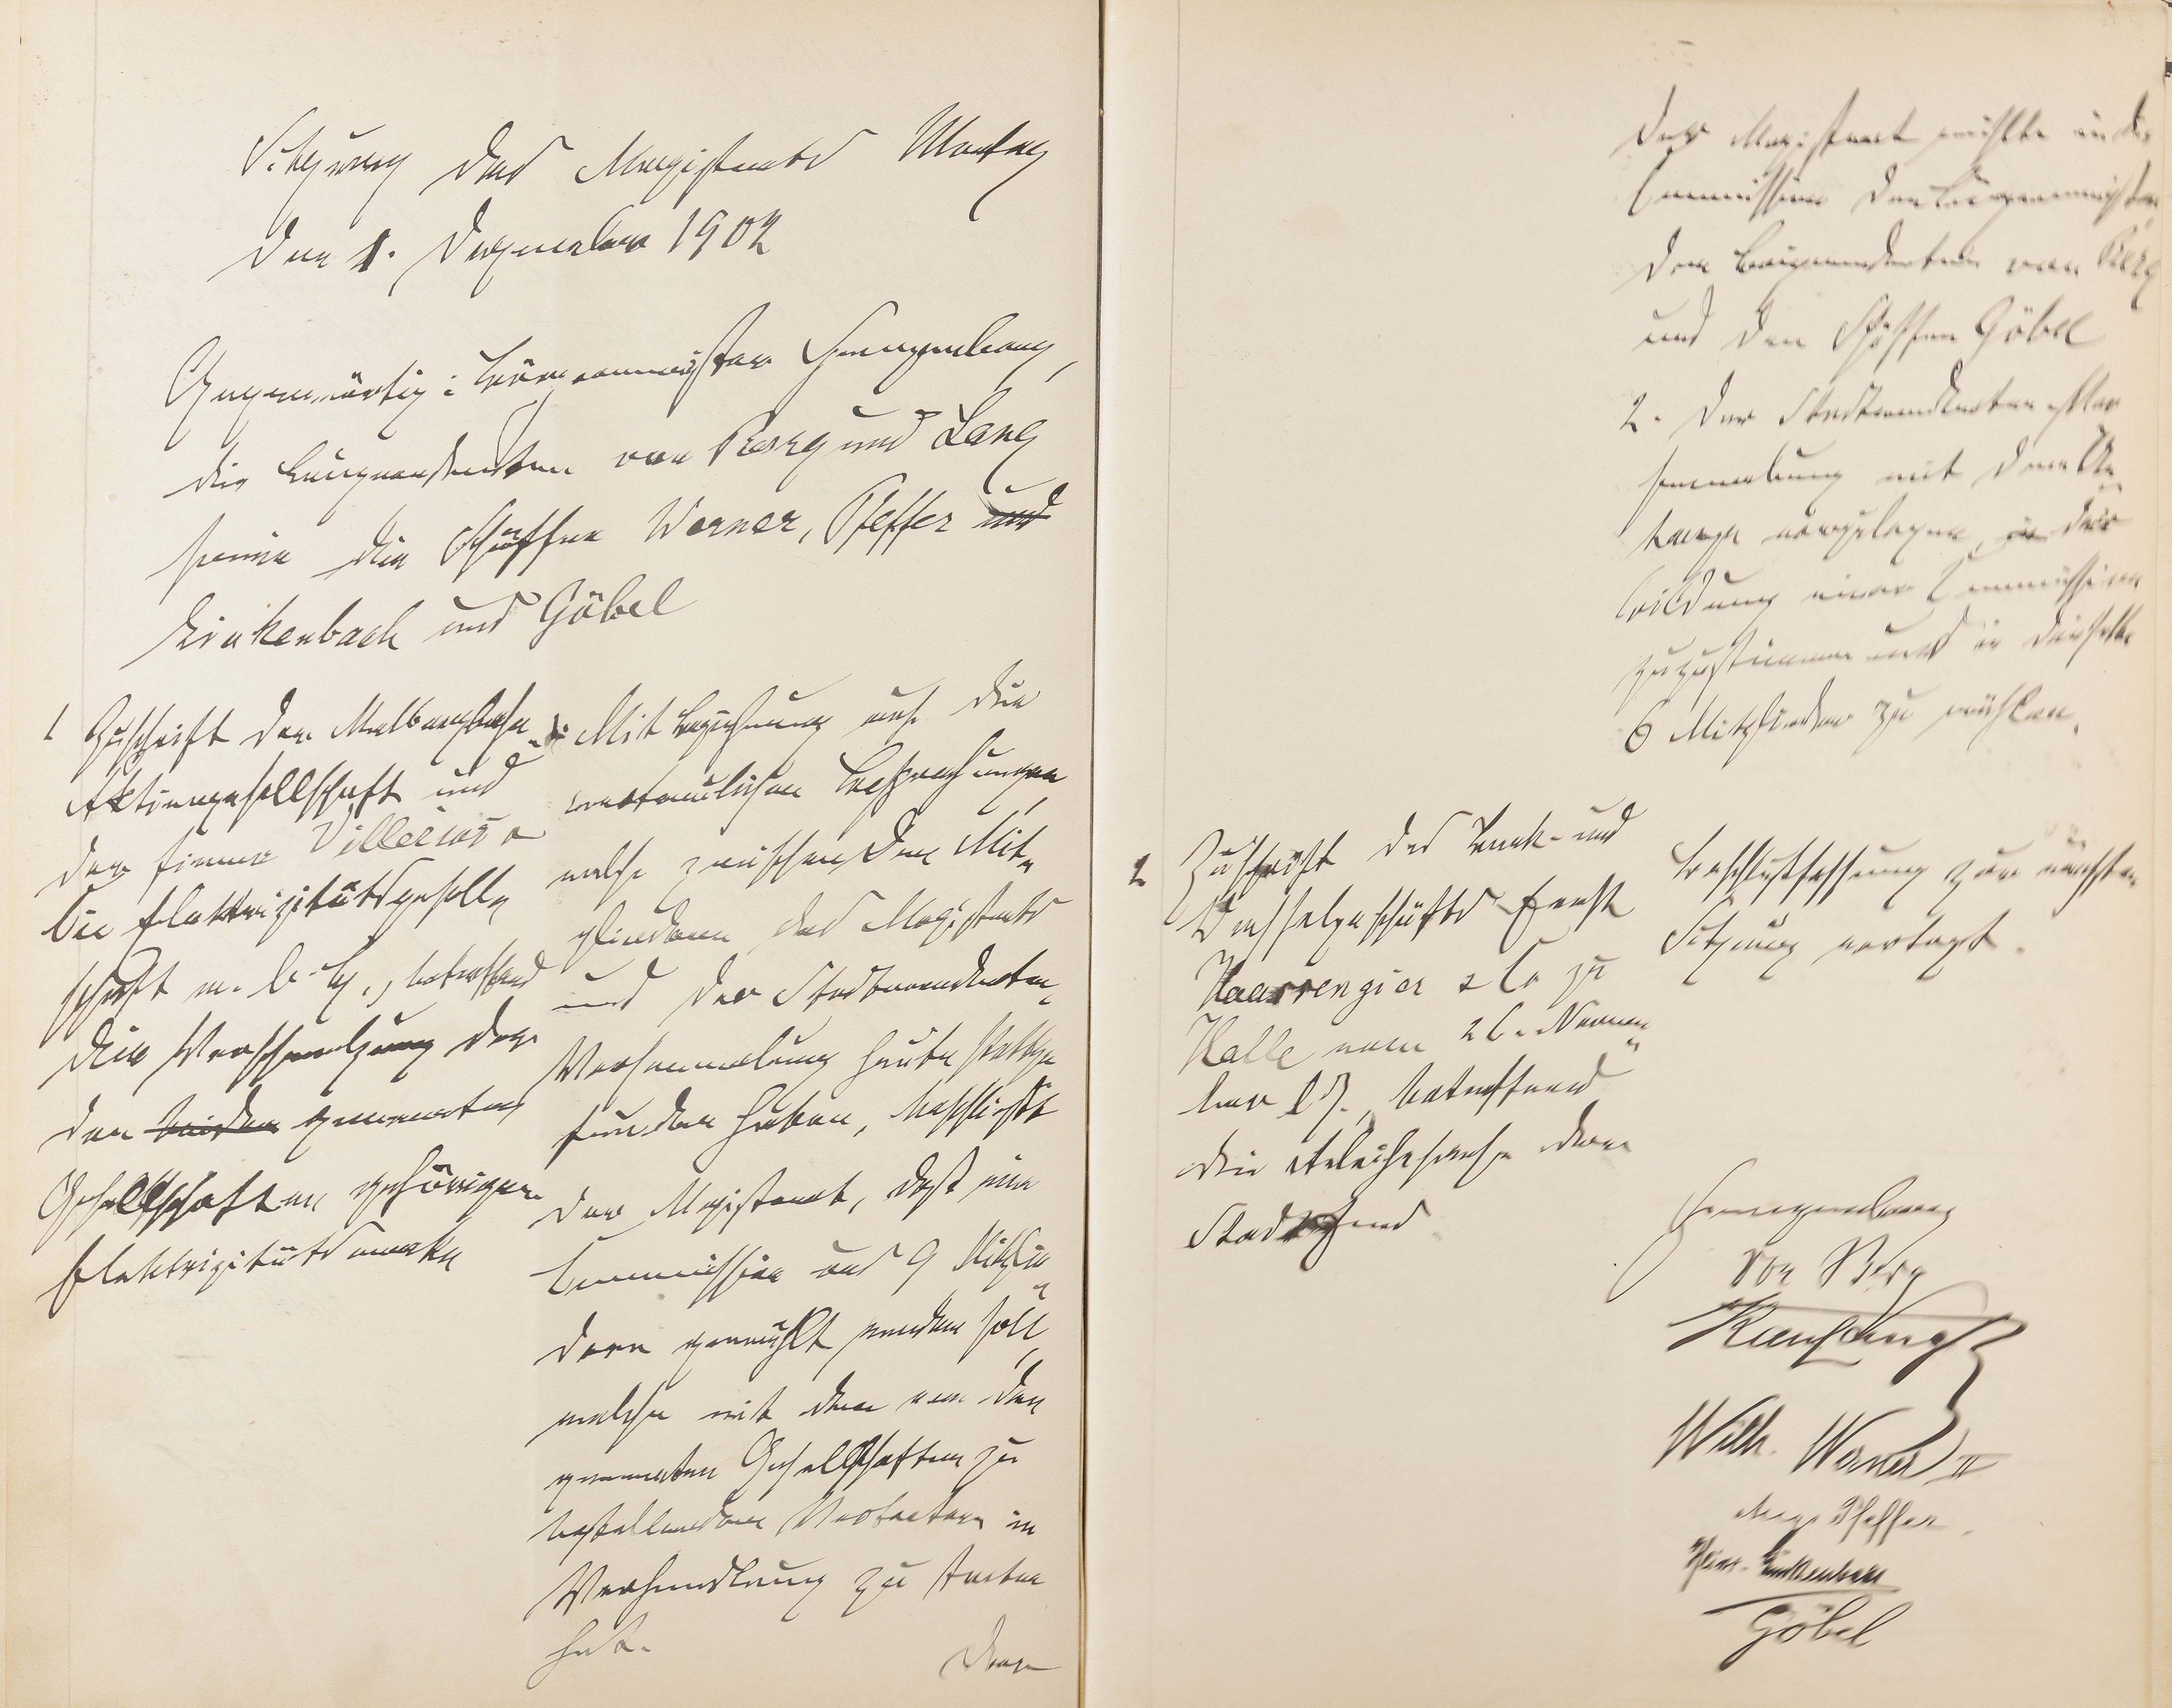 Sitzung des Magistrats Montag
den 1. Dezember 1902
Gegenwärtig: Bürgermeister
die Beigeordneten von Berg und Lang
sowie die Schöffen Werner, Pfeffer und
Linkenbach und Göbel
1 Zuschrift der Malbergbahn-
Aktiengesellschaft und
der Firma
die Elektrizitätsgesell-
schaft m. b. H., betreffend
die Verschmelzung der
den beiden genannten
Gesellschaften gehörigen
Elektrizitätswerke
Mit Beziehung auf die
vertraulichen Besprechungen
welche zwischen den Mit-
gliedern des Magistrats
und der Stadtverordneten-
Versammlung heute stattge-
funden haben, beschließt
der Magistrat, daß eine
Commission aus 9 Mitglie-
dern gewählt werden soll,
welche mit den von den
genannten Gesellschaften zu
bestellenden Vertretern in
Verhandlung zu treten
hat.
Der
Der Magistrat wählte in die
Commission den Bürgermeister
den Beigeordneten von Berg
und den Schöffen Göbel
2. Der Stadtverordneten-Ver-
sammlung mit dem An-
trage vorzulegen, der
Bildung einer Commission
zuzustimmen und in dieselbe
6 Mitglieder zu wählen.
2 Zuschrift des Bank- und
Wechselgeschäfts Ernst
Haassengier & Co zu
Halle vom 26. Novem-
ber lJ., betreffend
die Anleihesache der
Stadt Ems
Beschlußfassung zur nächsten
Sitzung vertagt.
von Berg
Wilh. Werner II
Aug. Pfeffer.
Heinr. Linkenbach
Göbel